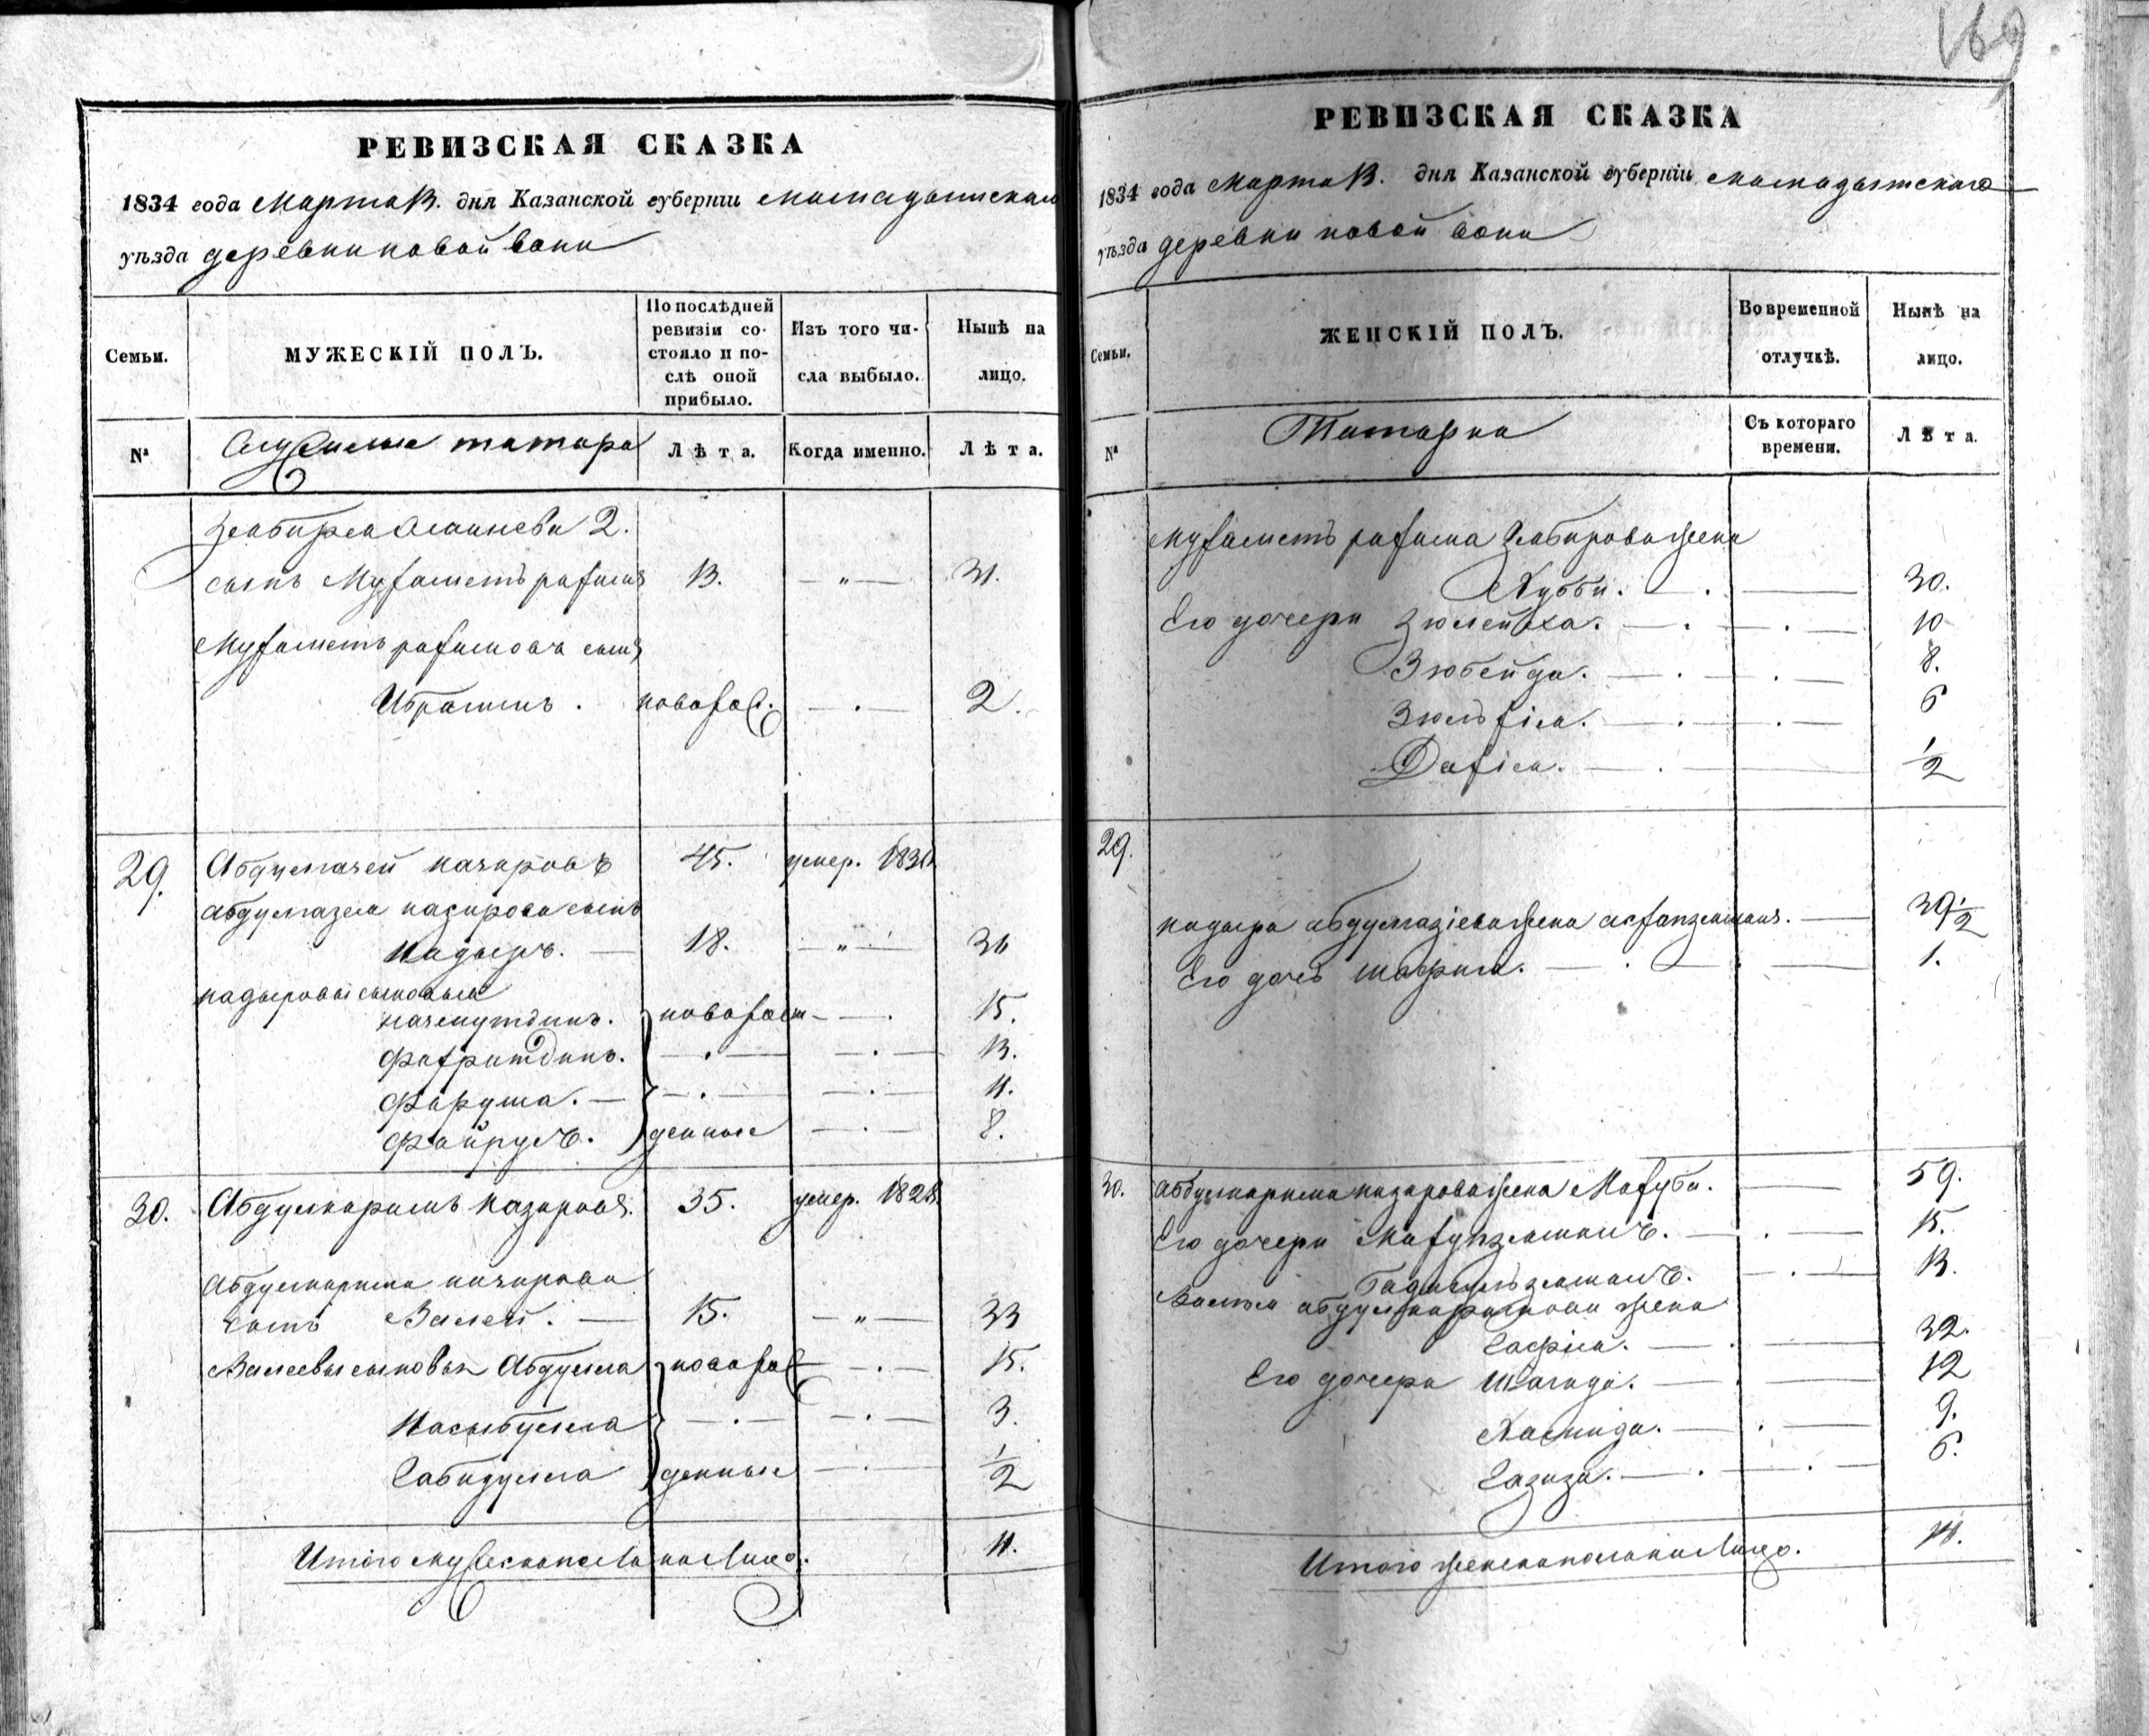 169
РЕВИЗСКАЯ СКАЗКА
1834 года Марта 13. дня Казанской губерніи Мамадышскаго
уѣзда деревни новой вони
Семьи.
МУЖЕСКІЙ ПОЛЪ.
По послѣдней ревизіи состояло и послѣ оной прибыло.
Изъ того числа выбыло.
Нынѣ на лицо.
№
татара
Лѣта.
Когда именно.
Лѣта.
2.
сынъ Мухаметъ рахимъ 13. — „ — 31.
Мухаметъ рахимова сынъ
Ибрагимъ . новорож. — . — 2.
29. Абдулмазей назировъ 45. умер. 1830
абдулмазея назирова сынъ
Кадыръ. — 18. — „ — 36
кадыровы сыновья
начмутдинъ. новорож — . 15.
Фахритдинъ. — . — — . — 13.
Фаруша. — — . — — . — 11.
Файрулъ. денные — . — 8.
30. Абдулкаримъ назировъ. 35. умер. 1828
Абдулкарима назирова
сынъ Валей. — 15. — „ — 33
Валеевы сыновья Абдулла новорож — . — 15.
Насыбулла — . — — . — 3.
Габидулла денные — . — 1/2
Итого мужеска пола на лицо. 11.
РЕВИЗСКАЯ СКАЗКА
1834 года Марта 13. дня Казанской губерніи Мамадышскаго
уѣзда деревни новой вони
Семьи.
ЖЕНСКІЙ ПОЛЪ.
Во временной отлучкѣ.
Нынѣ на лицо.
№
Татарки
Съ котораго времени.
Лѣта.
Мухаметъ рахима жена
Хубби. — . — 30.
Его дочери Зюлейха. — . — . — 10
Зюбейда. — . — . — 8.
Зюльфія. — . — . — 6
Дафія. — . — 1/2
29.
кадыра абдулмазіева жена — 39 1/2
Его дочь шафига. — . — . — 1.
30. абдулкарима назирова жена Махуба. — 59.
Его дочери Махупземалъ. — . — 15.
— . — 13.
абдулкаримова жена
Сафія. — . — 32.
Его дочери Шагида. — . — 12
Хамида. — . — 9.
Газиза. — . — . — 6.
Итого женска пола на лицо. 14.